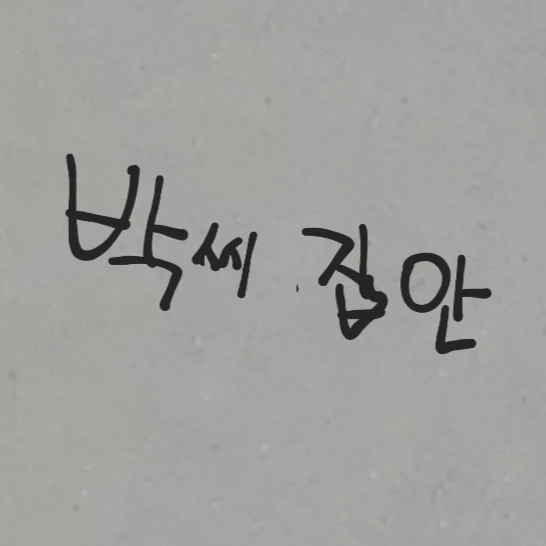 박씨 집안